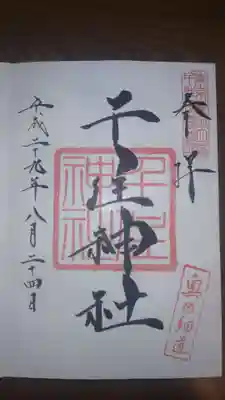 奉拝
千住神社
千住
神社
平成二十九年八月二十四日